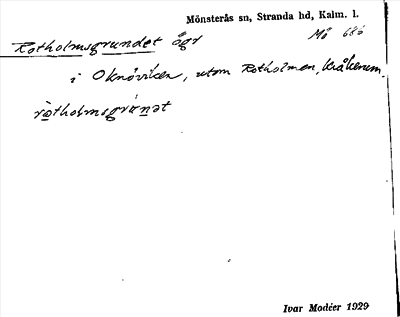 Mönsterås sn, Stranda hd, Kalm. l.
Rotholmsgrundet ögr Mö 686
i Oknöviken, utom Rotholmen, Kråkerum.
ròtholmsgrúnət
Ivar Modéer 1929